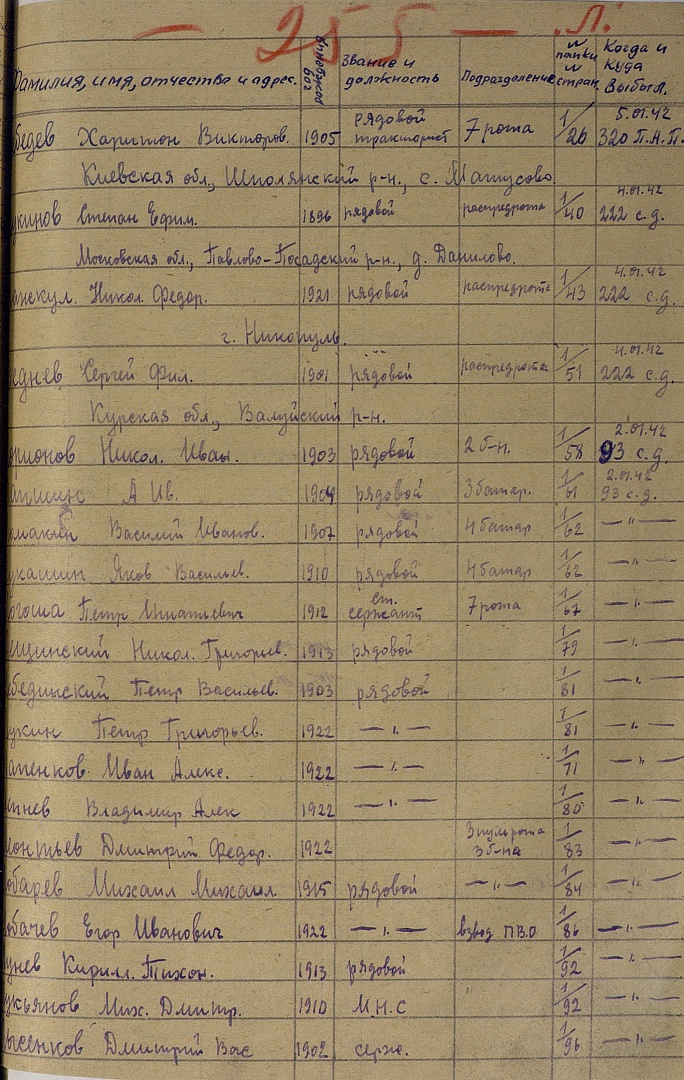 — 255 — Л.
Фамилия, имя, отчество и адрес. Звание и должность Подразделение № папки и стран. Когда и куда выбыл.
бедев Харитон Викторов. 1905 рядовой тракторист 7 рота 1/26 5.01.42 320 П.А.П.
Киевская обл., Шполянский р-н., с. Матусово.
укинов Степан Ефим. 1896 рядовой распредрота 1/40 4.01.42 222 с.д.
Московская обл., Павлово-Посадский р-н., д. Данилово.
Никол. Федор. 1921 рядовой распредрота 1/43 4.01.42 222 с.д.
г. Никополь.
еднев Сергей Фил. 1901 рядовой распредрота 1/51 4.01.42 222 с.д.
Курская обл., Валуйский р-н.
арионов Никол. Иван. 1903 рядовой 2 б-н. 1/58 2.01.42 93 с.д.
апшин А Ив. 1904 рядовой 3 батар. 1/61 2.01.42 93 с.д.
омакин Василий Иванов. 1907 рядовой 4 батар 1/62 —"—
укашин Яков Васильев. 1910 рядовой 4 батар 1/62 —"—
Петр Игнатьевич 1912 ст. сержант 7 рота 1/67 —"—
ещинский Никол. Григорьев. 1913 рядовой 1/79 —"—
бединский Петр Васильев. 1903 рядовой 1/81 —"—
укин Петр Григорьев. 1922 —"— 1/81 —"—
апенков Иван Алекс. 1922 —"— 1/71 —"—
Владимир Алек 1922 —"— 1/80 —"—
еонтьев Дмитрий Федор. 1922 3 пульрота 3 б-на 1/83 —"—
обарев Михаил Михаил. 1915 рядовой —"— 1/84 —"—
обачев Егор Иванович 1922 —"— взвод ПВО 1/86 —"—
унев Кирилл. Тихон. 1913 рядовой 1/92 —"—
укьянов Мих. Дмитр. 1910 М.Н.С 1/92 —"—
ысенков Дмитрий Вас 1902 серж. 1/96 —"—